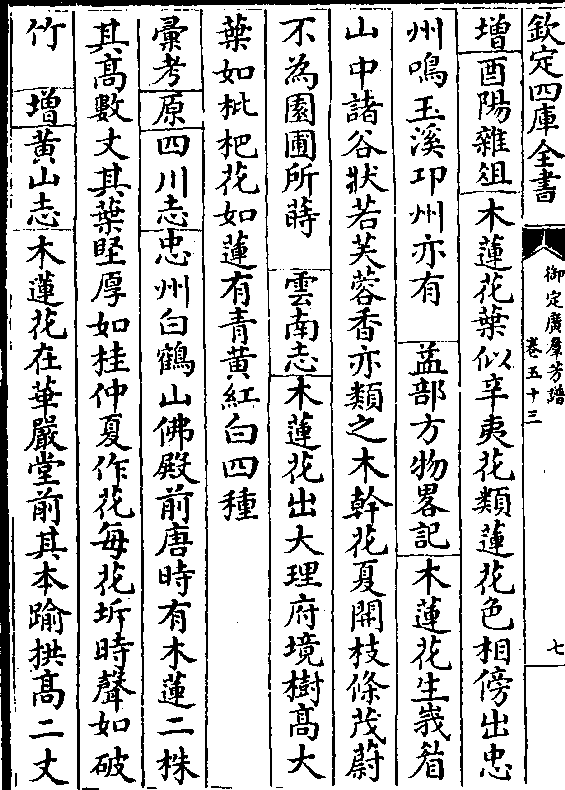 欽定四庫全書
御定廣羣芳譜
卷五十三
七
增酉陽雜俎木蓮花葉似辛夷花類蓮花色相傍出忠
州鳴玉溪卭州亦有 益部方物畧記木蓮花生峩眉
山中諸谷狀若芙蓉香亦類之木幹花夏開枝條茂蔚
不為園圃所蒔 雲南志木蓮花出大理府境樹高大
葉如枇杷花如蓮有青黃紅白四種
彚考原四川志忠州白鶴山佛殿前唐時有木蓮二株
其高數丈其葉堅厚如桂仲夏作花每花坼時聲如破
竹 增黃山志木蓮花在華嚴堂前其本踰拱高二丈